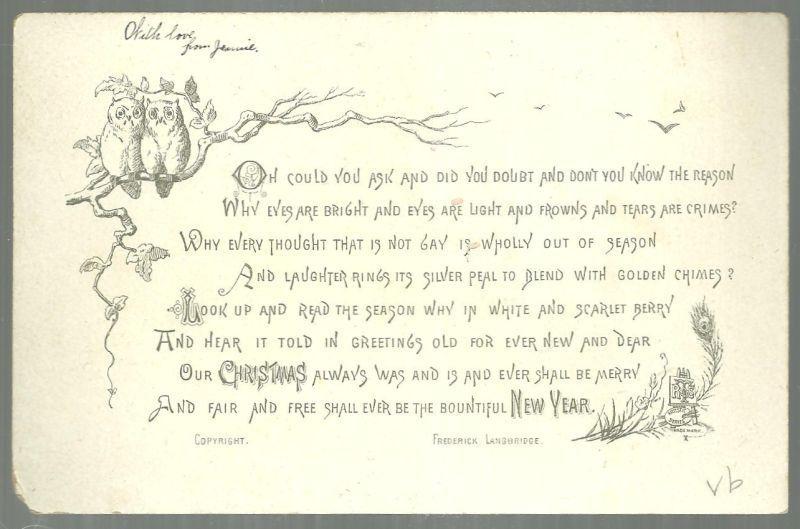 With love
from Jennie.
Oh could you ask and did you doubt and don't you know the reason
Why eyes are bright and eyes are light and frowns and tears are crimes?
Why every thought that is not gay is wholly out of season
And laughter rings its silver peal to blend with golden chimes?
Look up and read the season why in white and scarlet berry
And hear it told in greetings old for ever new and dear
Our CHRISTMAS always was and is and ever shall be merry
And fair and free shall ever be the bountiful NEW YEAR.
COPYRIGHT. FREDERICK LANGBRIDGE.
TRADE MARK
vb